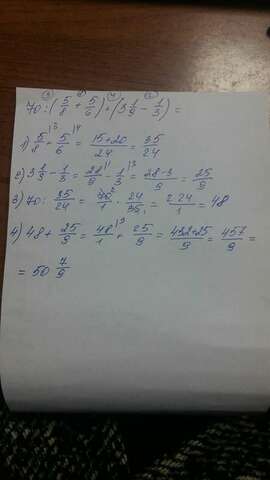 ③ ① ④ ②
70:(5/8 + 5/6) + (3 1/9 - 1/3) =
1) 5/8 |3 + 5/6 |4 = 15+20/24 = 35/24
2) 3 1/9 - 1/3 = 28/9 |1 - 1/3 |3 = 28-3/9 = 25/9
3) 70: 35/24 = 70 2/1 · 24/35 1 = 2·24/1 = 48
4) 48 + 25/9 = 48/1 |9 + 25/9 = 432+25/9 = 457/9 =
= 50 7/9